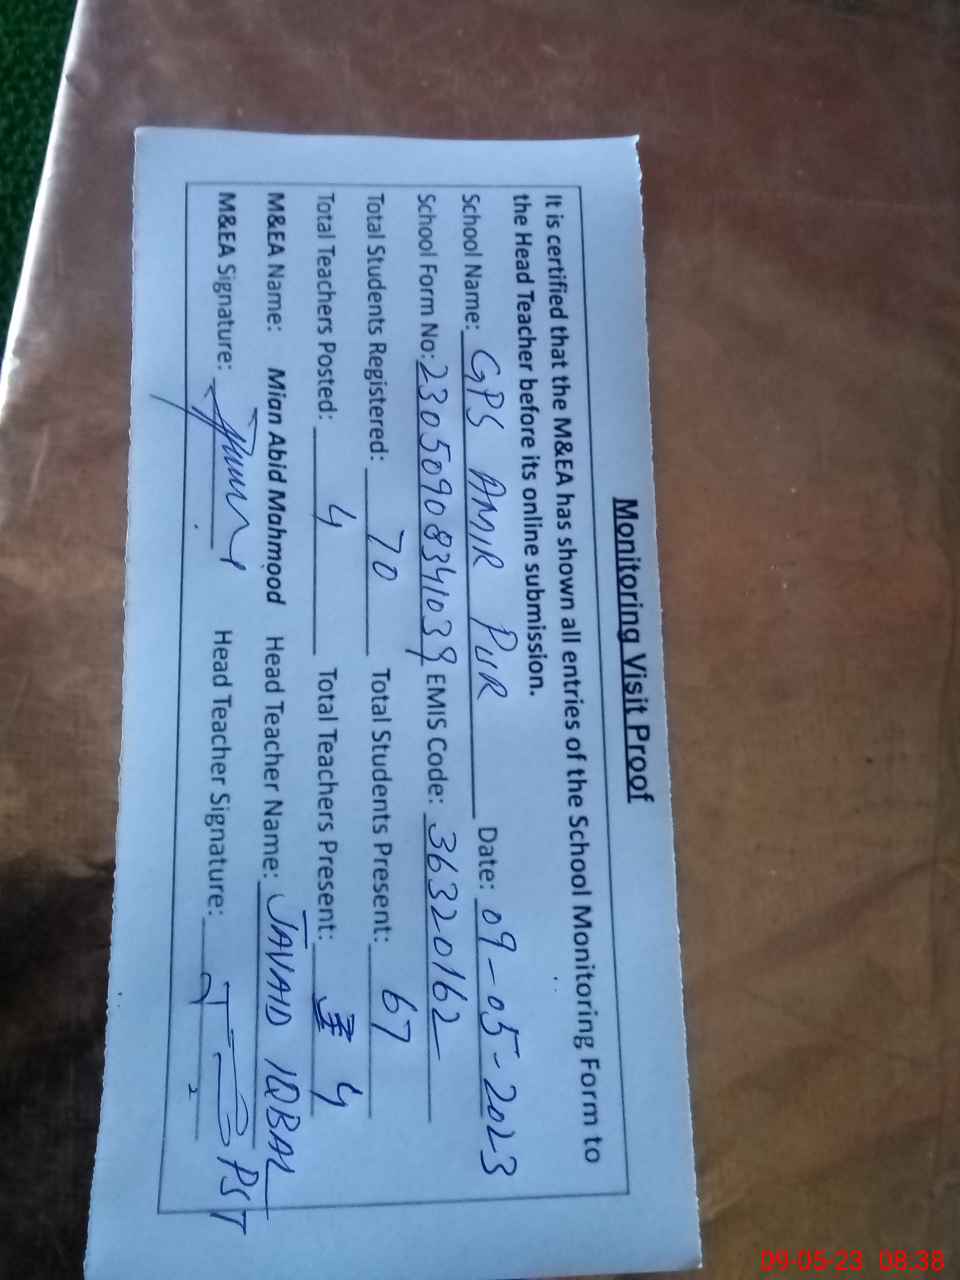 Monitoring Visit Proof
It is certified that the M&EA has shown all entries of the School Monitoring Form to
the Head Teacher before its online submission.
School Name: GPS AMIR PUR Date: 09-05-2023
School Form No: 23050908341039 EMIS Code: 36320162
Total Students Registered: 70 Total Students Present: 67
Total Teachers Posted: 4 Total Teachers Present: 4
M&EA Name: Mian Abid Mahmood Head Teacher Name: JAVAID IQBAL
M&EA Signature: Head Teacher Signature: PST
09-05-23 08:38